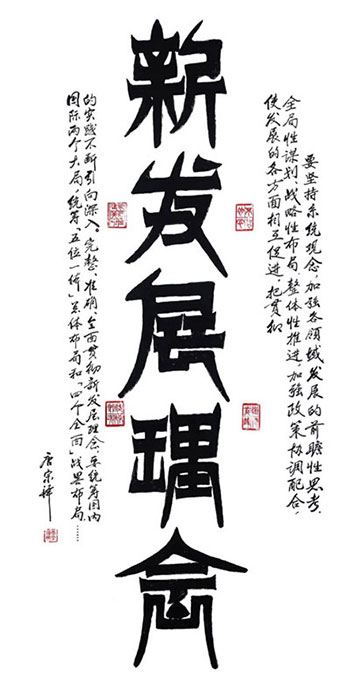 要坚持系统观念,加强各领域发展的前瞻性思考、
全局性谋划、战略性布局、整体性推进,加强政策协调配合,
使发展的各方面相互促进,把贯彻
新发展理念
的实践不断引向深入。完整、准确、全面贯彻新发展理念,要统筹国内
国际两个大局,统筹「五位一体」总体布局和「四个全面」战略布局……